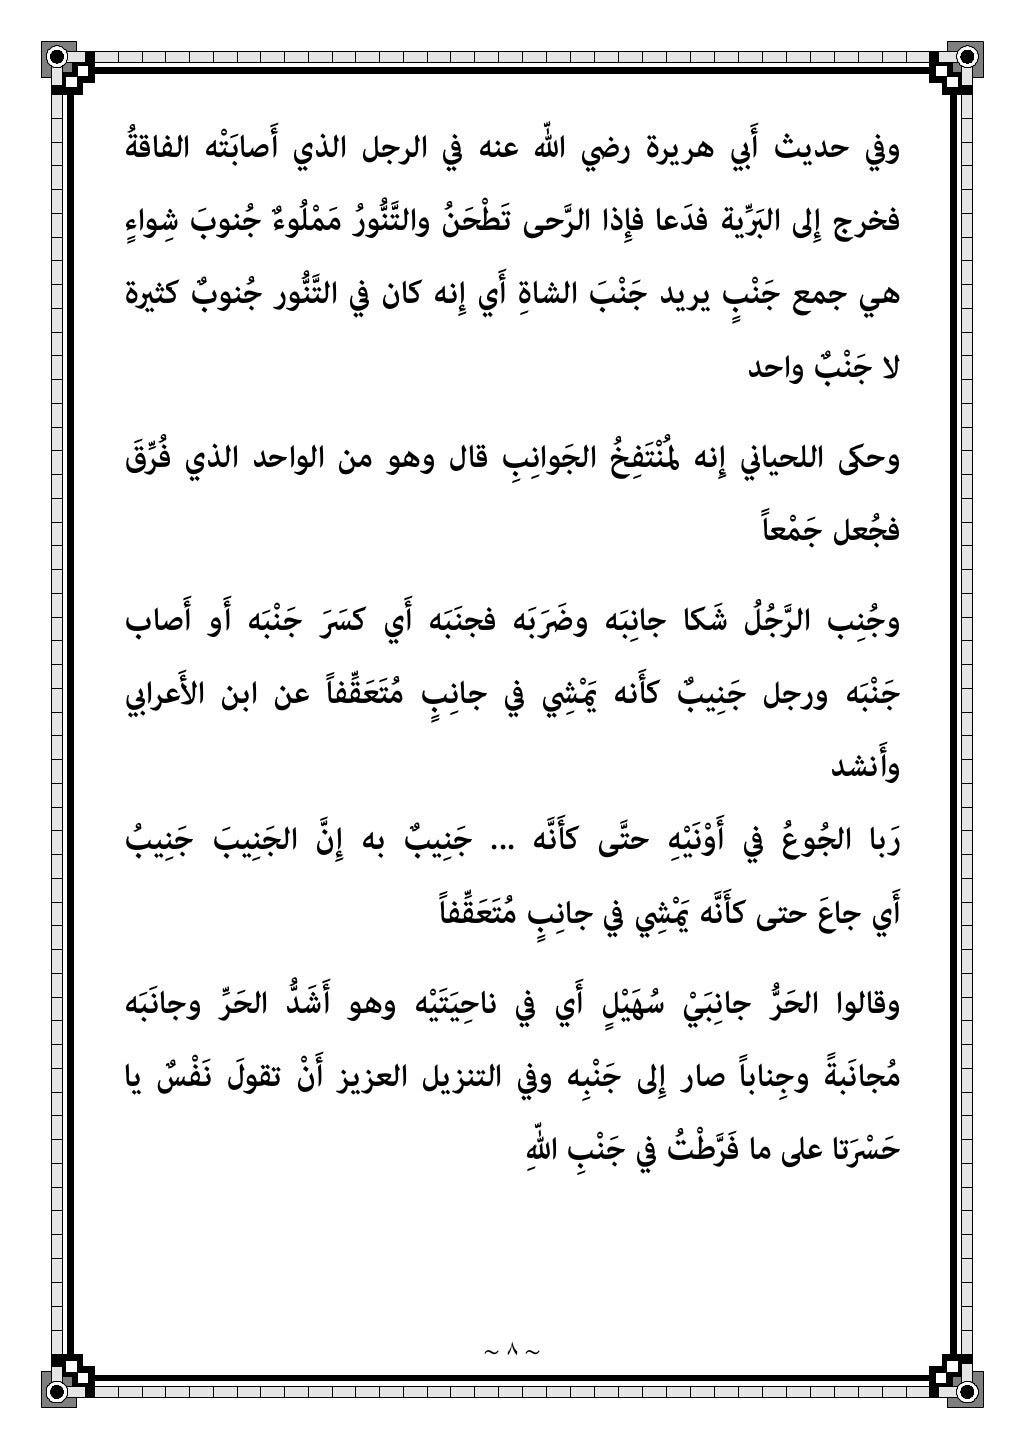 وفي حديث أَبي هريرة رضي الله عنه في الرجل الذي أَصابَتْه الفاقةُ
فخرج إِلى البَرِّية فدَعا فإِذا الرَّحى تَطْحَنُ والتَّنُّورُ مَمْلُوءٌ جُنوبَ شِواءٍ
هي جمع جَنْبٍ يريد جَنْبَ الشاةِ أَي إِنه كان في التَّنُّور جُنوبٌ كثيرة
لا جَنْبٌ واحد
وحكى اللحياني إِنه لمُنْتَفِخُ الجَوانِبِ قال وهو من الواحد الذي فُرِّقَ
فجُعل جَمْعاً
وجُنِب الرَّجُلُ شَكا جانِبَه وضَرَبَه فجنَبَه أَي كسَرَ جَنْبَه أَو أَصاب
جَنْبَه ورجل جَنِيبٌ كأَنه يَمْشِي في جانِبٍ مُتَعَقِّفاً عن ابن الأَعرابي
وأَنشد
رَبا الجُوعُ في أَوْنَيْهِ حتَّى كأَنَّه ... جَنِيبٌ به إِنَّ الجَنِيبَ جَنِيبُ
أَي جاعَ حتى كأَنَّه يَمْشِي في جانِبٍ مُتَعَقِّفاً
وقالوا الحَرُّ جانِبَيْ سُهَيْلٍ أَي في ناحِيَتَيْه وهو أَشَدُّ الحَرِّ وجانَبَه
مُجانَبةً وجِناباً صار إِلى جَنْبِه وفي التنزيل العزيز أَنْ تقولَ نَفْسٌ يا
حَسْرَتا على ما فَرَّطْتُ في جَنْبِ اللهِ
~ ٨ ~